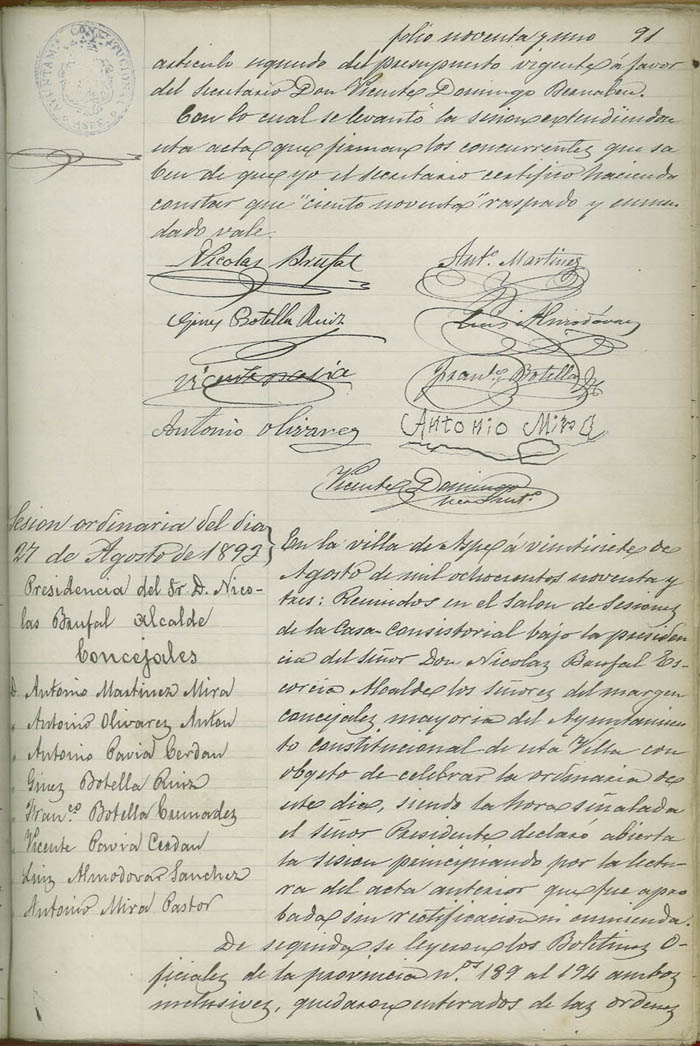 folio noventa y uno 91
AYUNTAMTO CONSTITUCIONAL
ASPE
articulo segundo del presupuesto vigente á favor
del Secretario Don Vicente Domingo Bernabeu.
Con lo cual se levantó la sesion extendiendose
esta acta que firman los concurrentes que sa
ben de que yo el secretario certifico haciendo
constar que "ciento noventa" raspado y enmen
dado vale.
Nicolas Brufal
Antº Martinez
Gines Botella Ruiz
Luis Almodóvar
Vicente Pavia
Franco Botella
Antonio Olivares
Antonio Mira
Vicente Domingo
Sesion ordinaria del dia
27 de Agosto de 1893
Presidencia del Sr. D. Nico-
las Brufal Alcalde
Concejales
D. Antonio Martinez Mira
" Antonio Olivarez Anton
" Antonio Pavia Cerdan
" Ginez Botella Ruiz
" Fran.co Botella
" Vicente Pavia Cerdan
" Luiz Almodovar Sanchez
" Antonio Mira Pastor
En la villa de Aspe á vintisiete de
Agosto de mil ochocientos noventa y
tres: Reunidos en el Salon de Sesionez
de la Casa-Consistorial bajo la presiden
cia del señor Don Nicolaz Brufal Es-
corcia Alcalde los señorez del margen
concejalez mayoria del Ayuntamien
to constitucional de esta Villa con
obgeto de celebrar la ordinaria de
este dia, siendo la hora señalada
el señor Presidente declaró abierta
la sesion principiando por la lectu-
ra del acta anterior que fue apro
bada sin rectificacion ni enmienda.
De seguida se leyeron los Boletinez O-
ficialez de la provincia n.os 189 al 194 amboz
inclusivez, quedaron enterados de laz ordenez